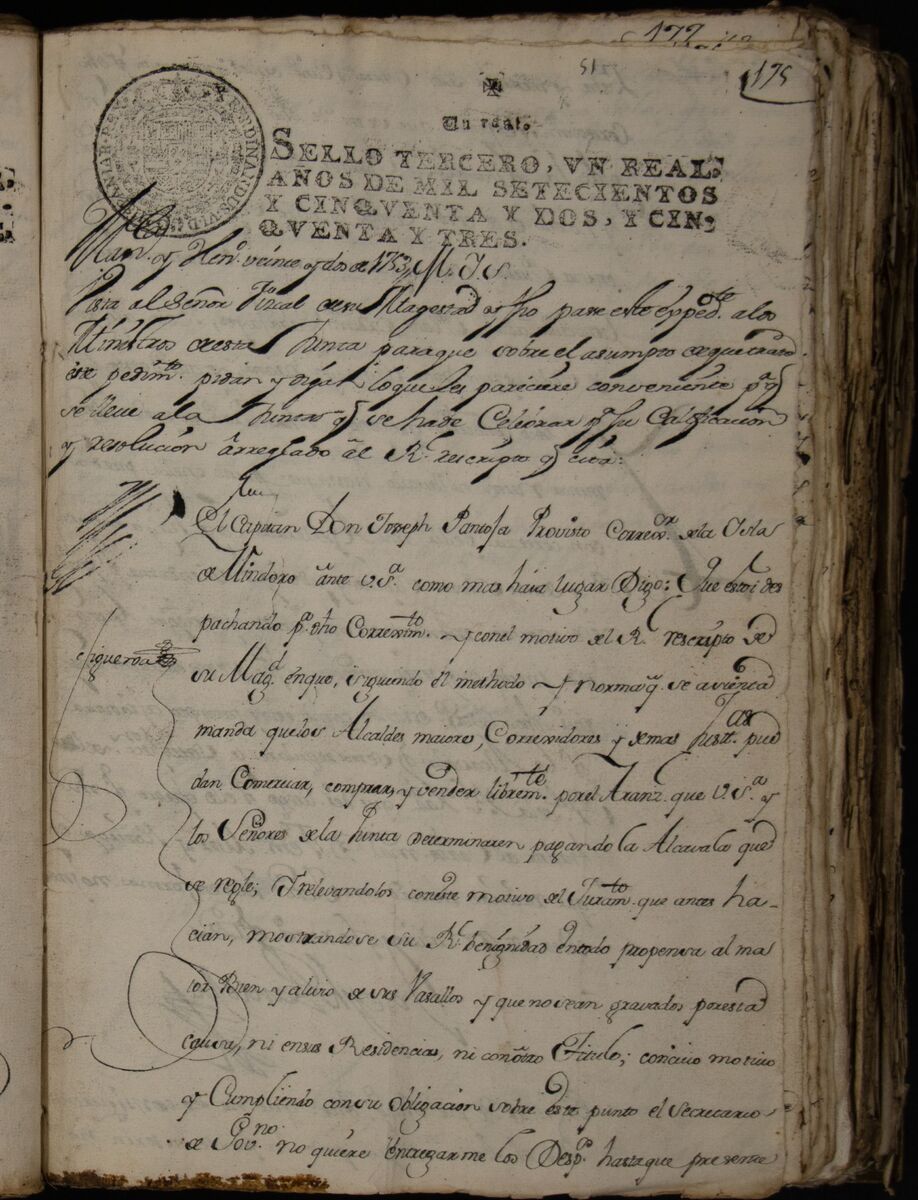 177
515
175
Un real.
SELLO TERCERO, VN REAL,
AÑOS DE MIL SETECIENTOS
Y CINQVENTA Y DOS, Y CIN,
QVENTA Y TRES.
Man.ª y Hen.º veinte y dos de 1753
Vista al Señor Fiscal de su Magestad y fho pase este exped.te a los
Ministros de esta Junta para que sobre el asumpto de que trata
ese pedim.to pidan y digan lo que les pareciere conveniente p.ª q
se lleve a la Junta q se ha de Celebrar p.ª su Calificacion
y resolucion arreglado al R.l rescripto q cita:
El Capitan Don Joseph Pantoja Provisto Correx.or de la Ysla
de Mindoro ante V.S.ª como mas haia lugar Digo: Que estoi des
pachando p.ª dho Correxim.to y con el motivo del R.l rescripto de
Figueroa
su Mag.d en que, siguiendo el methodo y norma q. se asienta
manda que los Alcaldes maiores, Correxidores y demas Just.as pue
dan Comerciar, comprar, y vender librem.te por el Aranz.l que V.S.ª y
los Señores de la Junta determinaren pagando la Alcavala que
se regle; Y relevandolos con este motivo del Juram.to que antes ha-
cian, mostrandose su R.l benignidad en todo propensa al ma
ior Bien y alivio de sus Vasallos y que no sean gravados por esta
causa, ni en sus Residencias, ni con otro Titulo; con cuio motivo
y Cumpliendo con su obligacion sobre este punto el Secretario
de Gov.no no quiere entregarme los Desp.os hasta que presente